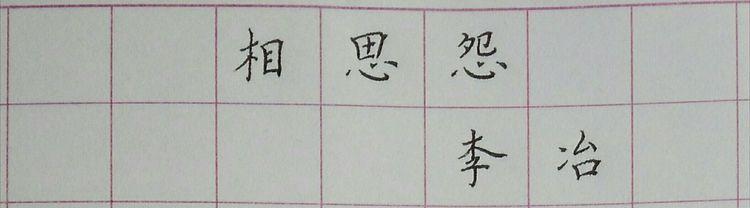 相思怨
李冶